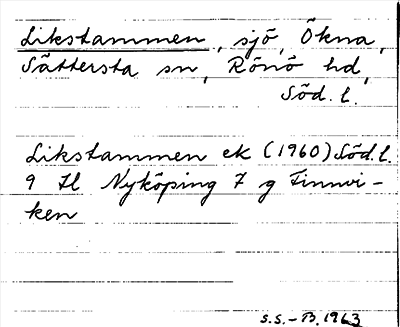 Likstammen, sjö, Ökna,
Sättersta sn, Rönö hd,
Söd. l.
Likstammen ek (1960) Söd. l.
9 H Nyköping 7 g Finnvi-
ken
S.S.-B. 1963